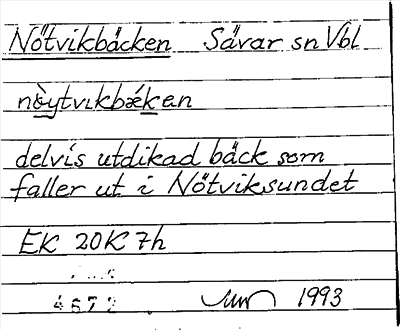 Nötvikbäcken Sävar sn Vbl
nöytvıkbǽken
delvis utdikad bäck som
faller ut i Nötviksundet
EK 20K 7h
4672 1993